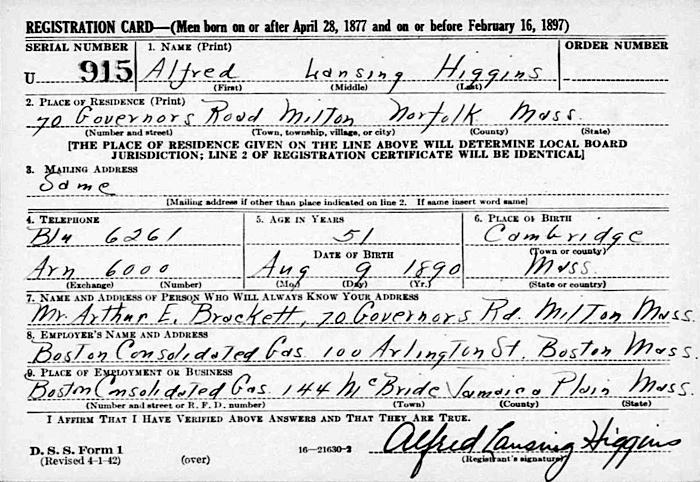 REGISTRATION CARD—(Men born on or after April 28, 1877 and on or before February 16, 1897)
SERIAL NUMBER 1. NAME (Print) ORDER NUMBER
U 915 Alfred Lansing Higgins
(First) (Middle) (Last)
2. PLACE OF RESIDENCE (Print)
70 Governors Road Milton Norfolk Mass.
(Number and street) (Town, township, village, or city) (County) (State)
[THE PLACE OF RESIDENCE GIVEN ON THE LINE ABOVE WILL DETERMINE LOCAL BOARD
JURISDICTION; LINE 2 OF REGISTRATION CERTIFICATE WILL BE IDENTICAL]
3. MAILING ADDRESS
Same
[Mailing address if other than place indicated on line 2. If same insert word same]
4. TELEPHONE 5. AGE IN YEARS 6. PLACE OF BIRTH
Blu 6261 51 Cambridge
DATE OF BIRTH (Town or county)
Arn 6000 Aug 9 1890 Mass.
(Exchange) (Number) (Mo.) (Day) (Yr.) (State or country)
7. NAME AND ADDRESS OF PERSON WHO WILL ALWAYS KNOW YOUR ADDRESS
Mr. Arthur E. Brackett, 70 Governors Rd. Milton Mass.
8. EMPLOYER'S NAME AND ADDRESS
Boston Consolidated Gas. 100 Arlington St. Boston Mass.
9. PLACE OF EMPLOYMENT OR BUSINESS
Boston Consolidated Gas. 144 McBride Jamaica Plain Mass.
(Number and street or R. F. D. number) (Town) (County) (State)
I AFFIRM THAT I HAVE VERIFIED ABOVE ANSWERS AND THAT THEY ARE TRUE.
D. S. S. Form 1 16—21630-2 Alfred Lansing Higgins
(Revised 4-1-42) (over) (Registrant's signature)